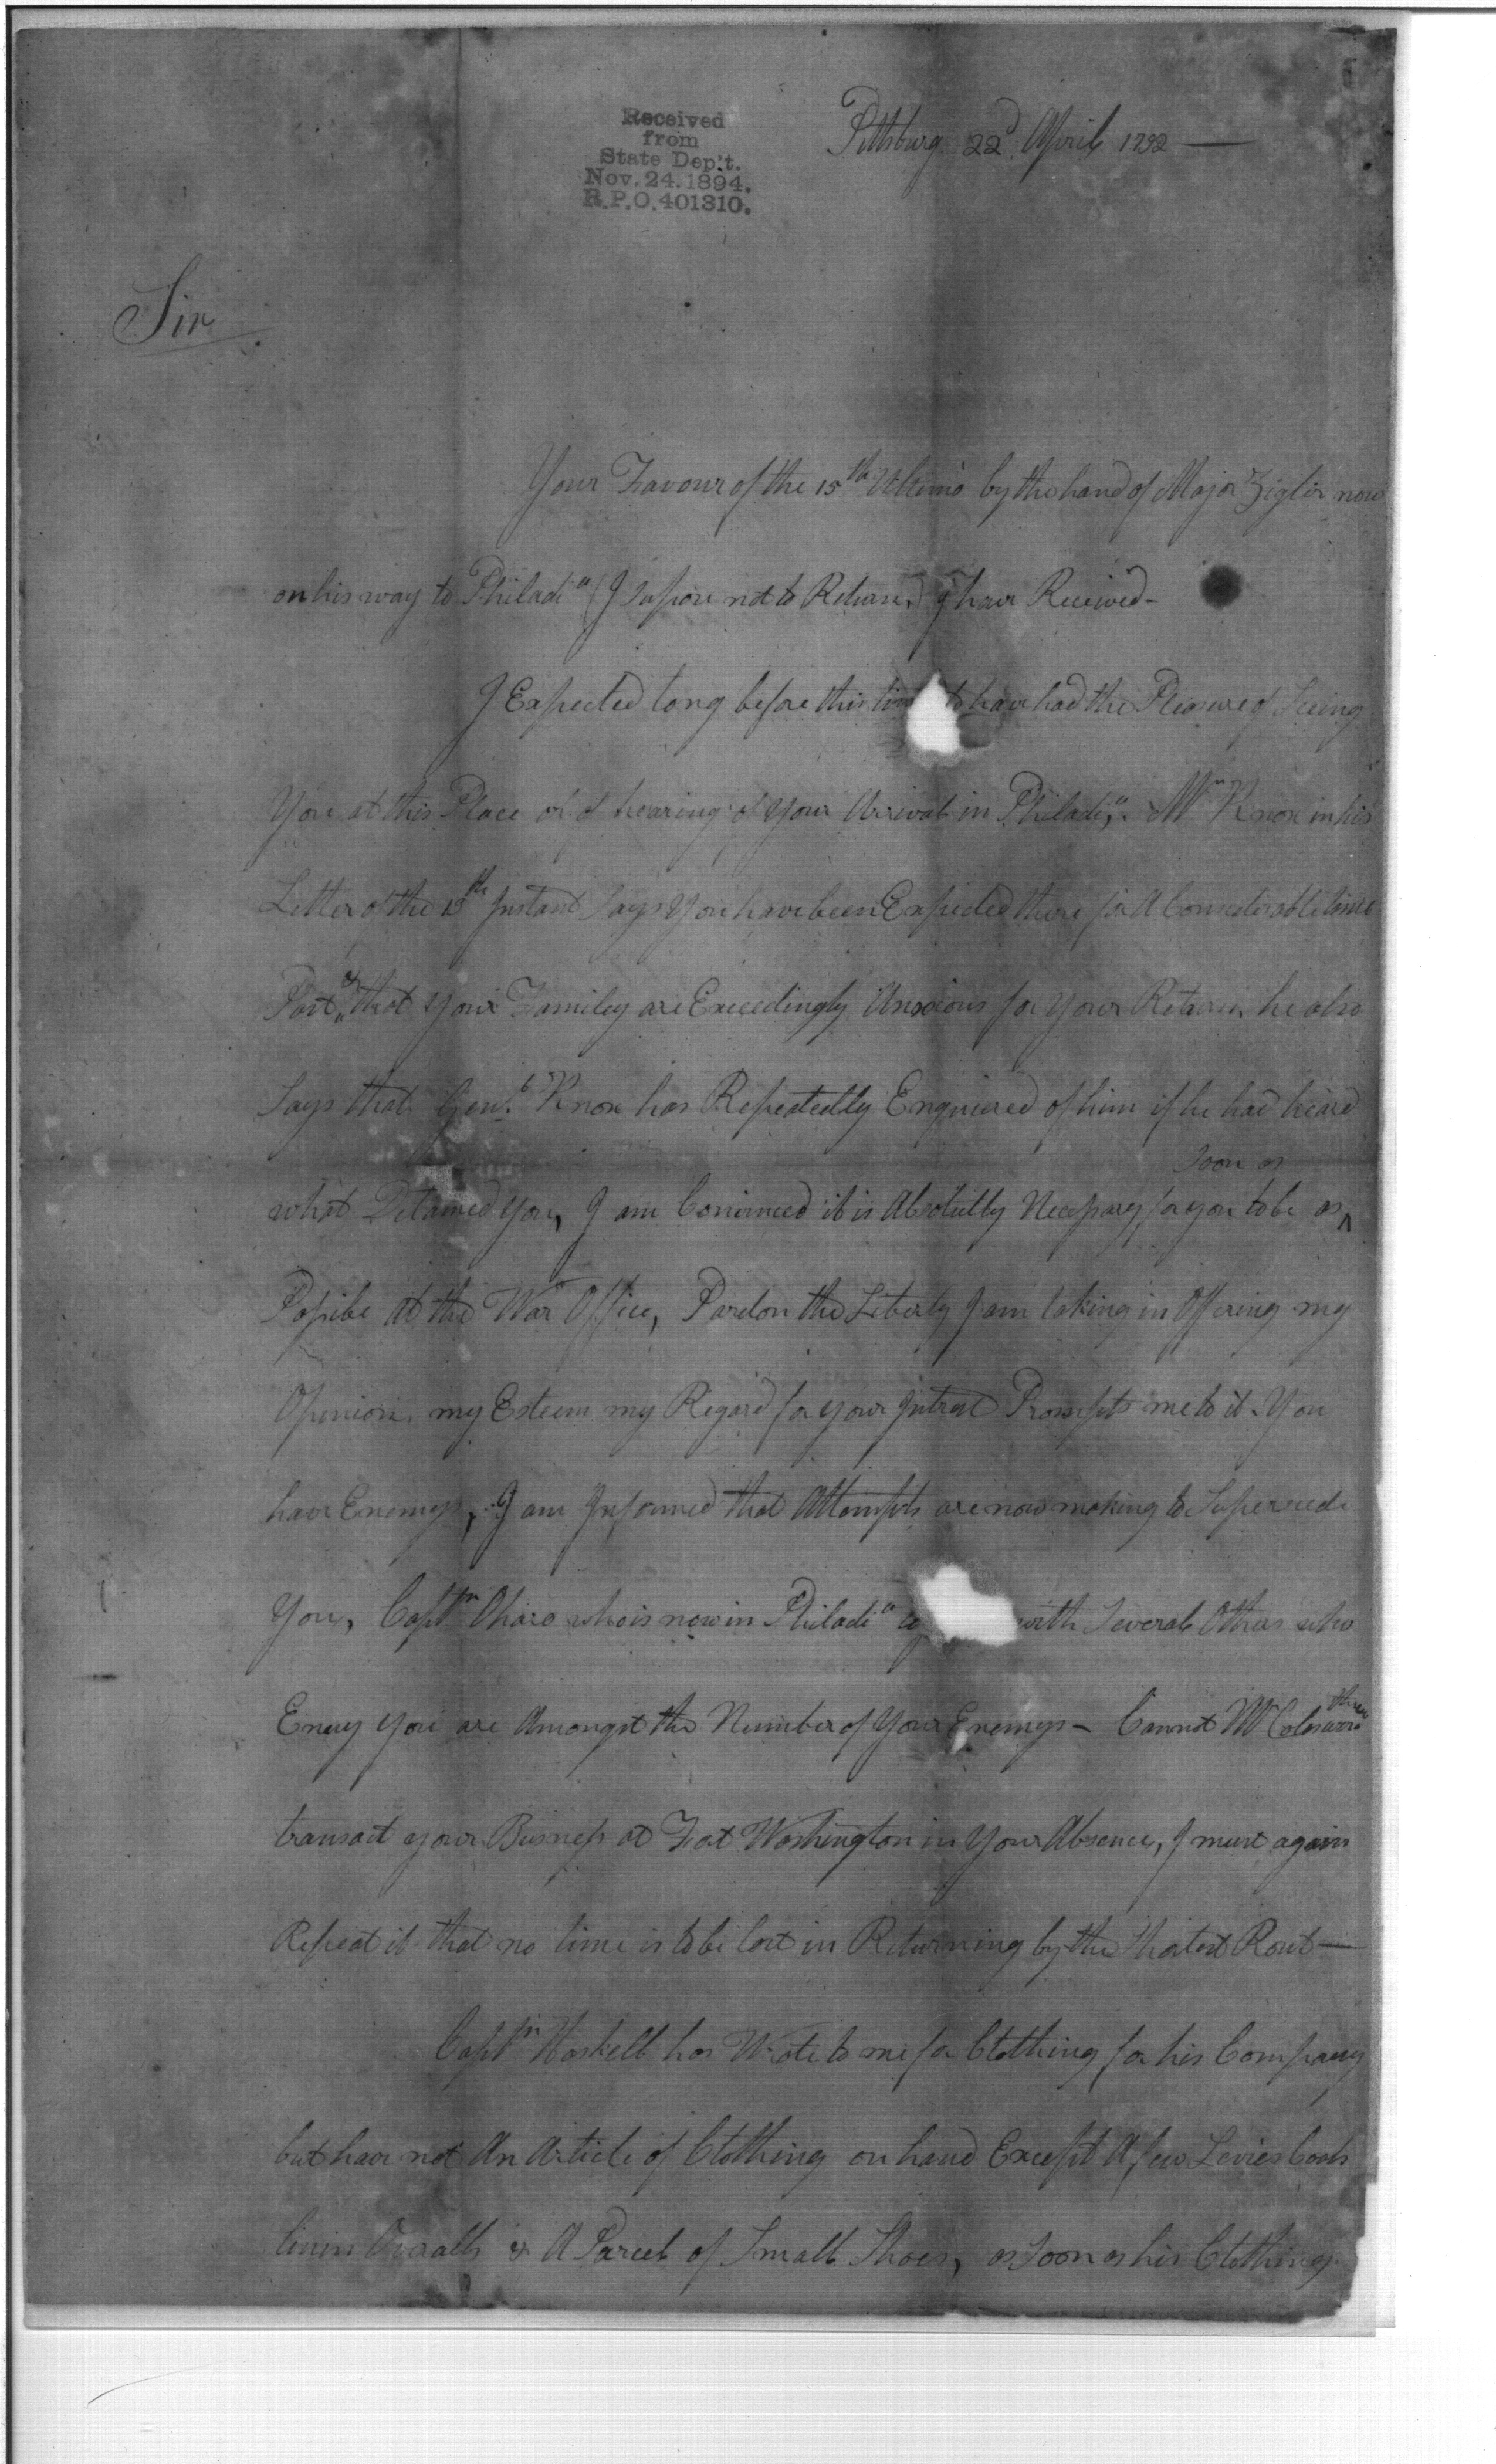 Received
from
State Dep't.
Nov. 24. 1894.
R.P.O. 401310.
Pittsburg 22d April 1792 —
Sir
Your Favour of the 15th Ultimo by the hand of Major Ziglir now
on his way to Philada (I supose not to Return) I have Received -
I Expected long before this time to have had the Pleasure of Seeing
You at this Place or of hearing of Your Arrival in Philada, Mr Knox in his
Letter of the 13th Instant Says You have been Expected there for A Considerable time
Past & that Your Familey are Exceedingly Anxious for Your Return he also
Says that Genl Knox has Repeatedly Enquiered of him if he had heard
soon as
what Detained You, I am Convinced it is Absolutly Necessary for you to be as ^
Possibe at the War Office, Pardon the Liberty I am taking in Offering my
Opinion, my Esteem my Regard for your Intrest Prompts me to it. You
have Enemys, I am Informed that Attempts are now making to Supercede
You, Captn Ohara who is now in Philada with Several Others who
Envey You are Amongst the Number of Your Enemys - Cannot Mr
transact your Business at Fort Washington in Your Absence, I must again
Repeat it that no time is to be lost in Returning by the Shortest Rout —
Captn Haskell has Wrote to me for Clothing for his Company
but have not An Article of Clothing on hand Except A few Levies Coats
linin Overalls & A Parcel of Small Shoes, as Soon as his Clothing